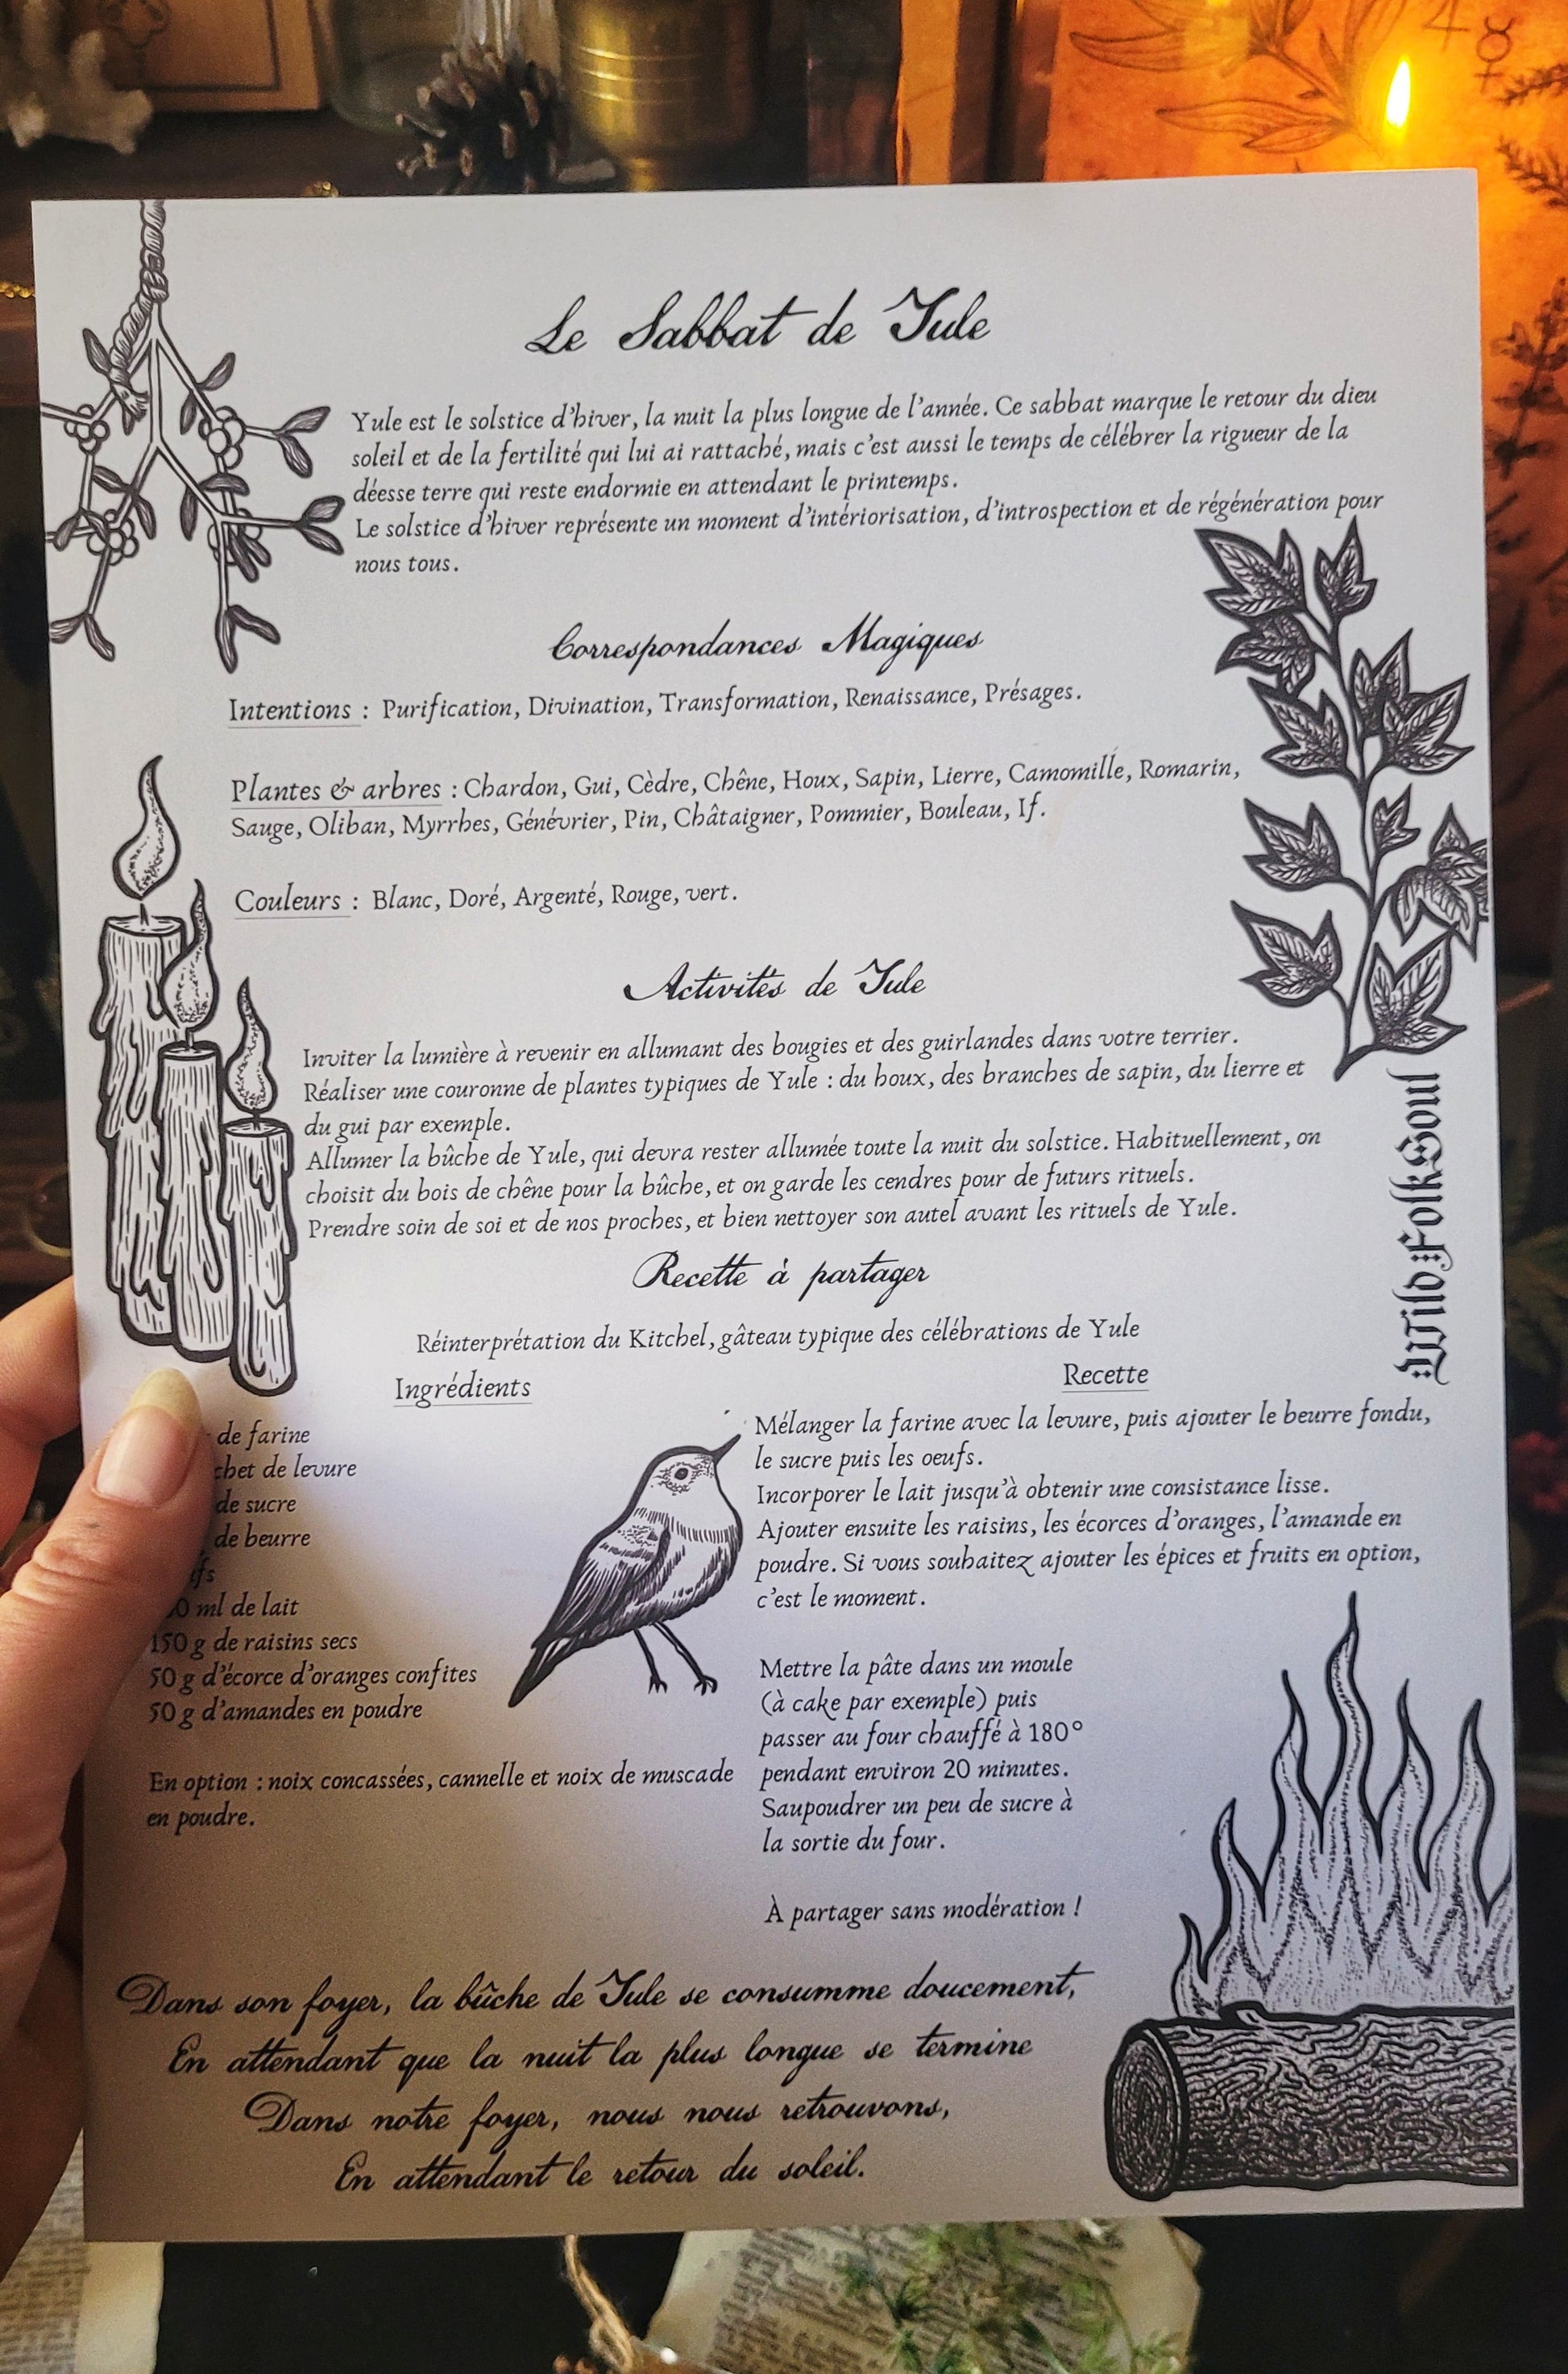 Le Sabbat de Yule
Yule est le solstice d'hiver, la nuit la plus longue de l'année. Ce sabbat marque le retour du dieu
soleil et de la fertilité qui lui ai rattaché, mais c'est aussi le temps de célébrer la rigueur de la
déesse terre qui reste endormie en attendant le printemps.
Le solstice d'hiver représente un moment d'intériorisation, d'introspection et de régénération pour
nous tous.
Correspondances Magiques
Intentions : Purification, Divination, Transformation, Renaissance, Présages.
Plantes & arbres : Chardon, Gui, Cèdre, Chêne, Houx, Sapin, Lierre, Camomille, Romarin,
Sauge, Oliban, Myrrhes, Génévrier, Pin, Châtaigner, Pommier, Bouleau, If.
Couleurs : Blanc, Doré, Argenté, Rouge, vert.
Activités de Yule
Inviter la lumière à revenir en allumant des bougies et des guirlandes dans votre terrier.
Réaliser une couronne de plantes typiques de Yule : du houx, des branches de sapin, du lierre et
du gui par exemple.
Allumer la bûche de Yule, qui devra rester allumée toute la nuit du solstice. Habituellement, on
choisit du bois de chêne pour la bûche, et on garde les cendres pour de futurs rituels.
Prendre soin de soi et de nos proches, et bien nettoyer son autel avant les rituels de Yule.
WildFolkSoul
Recette à partager
Réinterprétation du Kitchel, gâteau typique des célébrations de Yule
Ingrédients
de farine
de levure
de sucre
de beurre
ml de lait
150 g de raisins secs
50 g d'écorce d'oranges confites
50 g d'amandes en poudre
En option : noix concassées, cannelle et noix de muscade
en poudre.
Recette
Mélanger la farine avec la levure, puis ajouter le beurre fondu,
le sucre puis les oeufs.
Incorporer le lait jusqu'à obtenir une consistance lisse.
Ajouter ensuite les raisins, les écorces d'oranges, l'amande en
poudre. Si vous souhaitez ajouter les épices et fruits en option,
c'est le moment.
Mettre la pâte dans un moule
(à cake par exemple) puis
passer au four chauffé à 180°
pendant environ 20 minutes.
Saupoudrer un peu de sucre à
la sortie du four.
À partager sans modération !
Dans son foyer, la bûche de Yule se consumme doucement,
En attendant que la nuit la plus longue se termine
Dans notre foyer, nous nous retrouvons,
En attendant le retour du soleil.